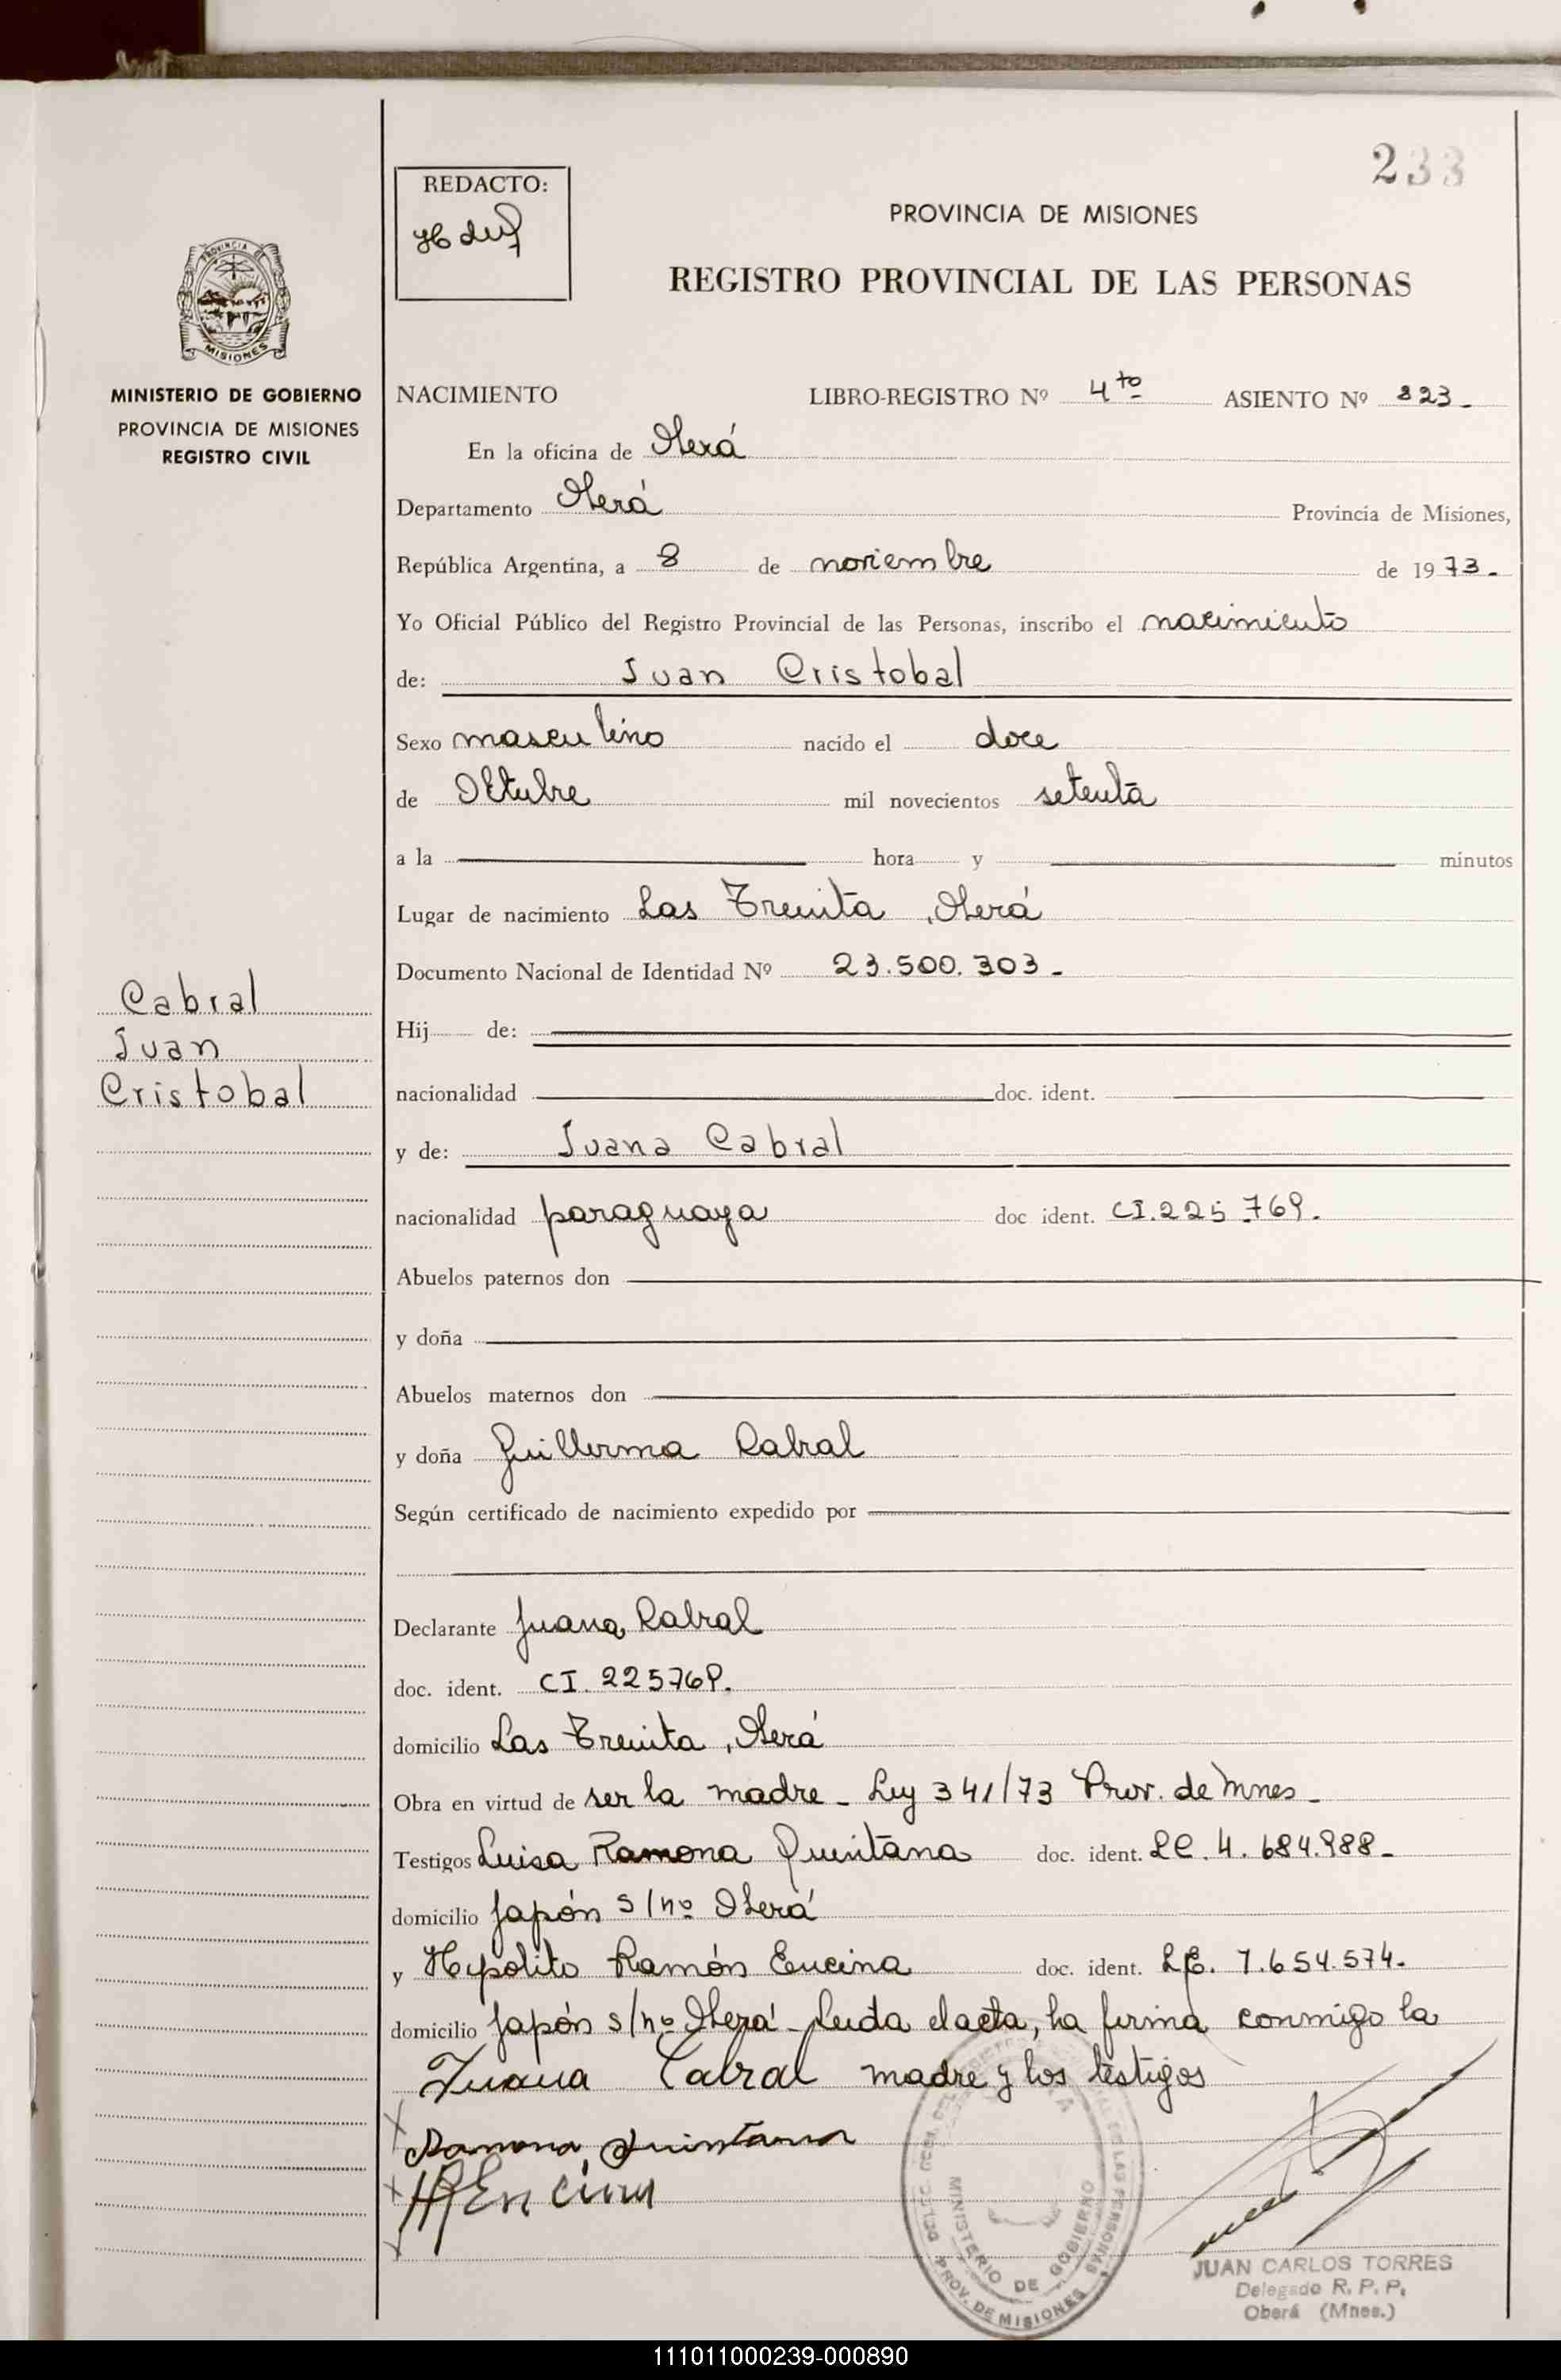 233
REDACTO:
PROVINCIA DE MISIONES
REGISTRO PROVINCIAL DE LAS PERSONAS
PROVINCIA DE
MISIONES
MINISTERIO DE GOBIERNO
PROVINCIA DE MISIONES
REGISTRO CIVIL
NACIMIENTO LIBRO-REGISTRO Nº 4to ASIENTO Nº 823.
En la oficina de Oberá
Departamento Oberá Provincia de Misiones,
República Argentina, a 8 de noviembre de 1973.
Yo Oficial Público del Registro Provincial de las Personas, inscribo el nacimiento
de: Juan Cristobal
Sexo masculino nacido el doce
de Octubre mil novecientos setenta
a la hora y minutos
Lugar de nacimiento Las Treinta, Oberá
Documento Nacional de Identidad Nº 23.500.303-
Cabral
Juan
Cristobal
Hij de:
nacionalidad doc. ident.
y de: Juana Cabral
nacionalidad paraguaya doc ident. CI.225.769.
Abuelos paternos don
y doña
Abuelos maternos don
y doña Guillerma Cabral
Según certificado de nacimiento expedido por
Declarante Juana Cabral
doc. ident. CI. 225769.
domicilio Las Treinta, Oberá
Obra en virtud de ser la madre - Ley 341/73 Prov. de Mnes-
Testigos Luisa Ramona Quintana doc. ident. LC. 4.684.988-
domicilio Japón s/nº Oberá
y Hipolito Ramón Encina doc. ident. LE. 7.654.574.
domicilio Japón s/nº Oberá - Leida el acta, la firma conmigo la
Juana Cabral madre y los testigos
Ramona Quintana
HREncina
MINISTERIO DE GOBIERNO
PROV. DE MISIONES
JUAN CARLOS TORRES
Delegado R. P. P.
Oberá (Mnes.)
111011000239-000890